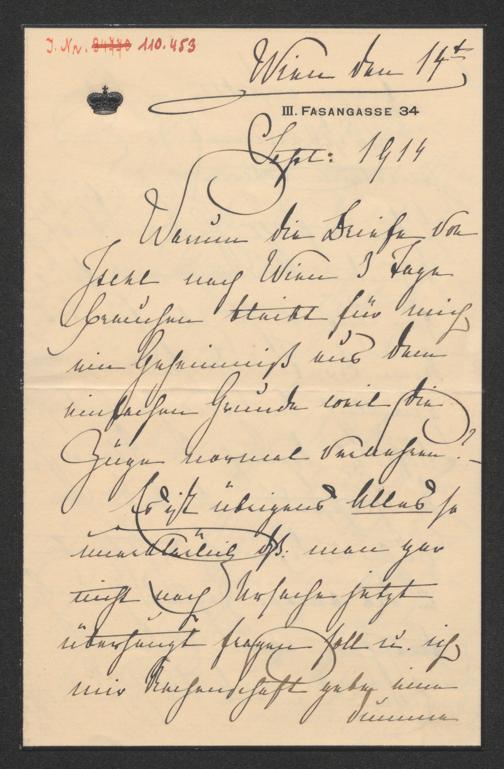 J. Nr. 84770 110.453
Wien den 14t
III. FASANGASSE 34
Sept: 1914
Warum die Briefe von
Ischl nach Wien 3 Tage
brauchen bleibt für mich
ein Geheimniß aus dem
einfachen Grunde weil die
Züge normal verkehren!
Es ist übrigens Alles so
unerklärlich dß. man gar
nicht nach Ursache jetzt
überhaupt fragen soll u. ich
mir Rechenschaft gebe eine
dumme